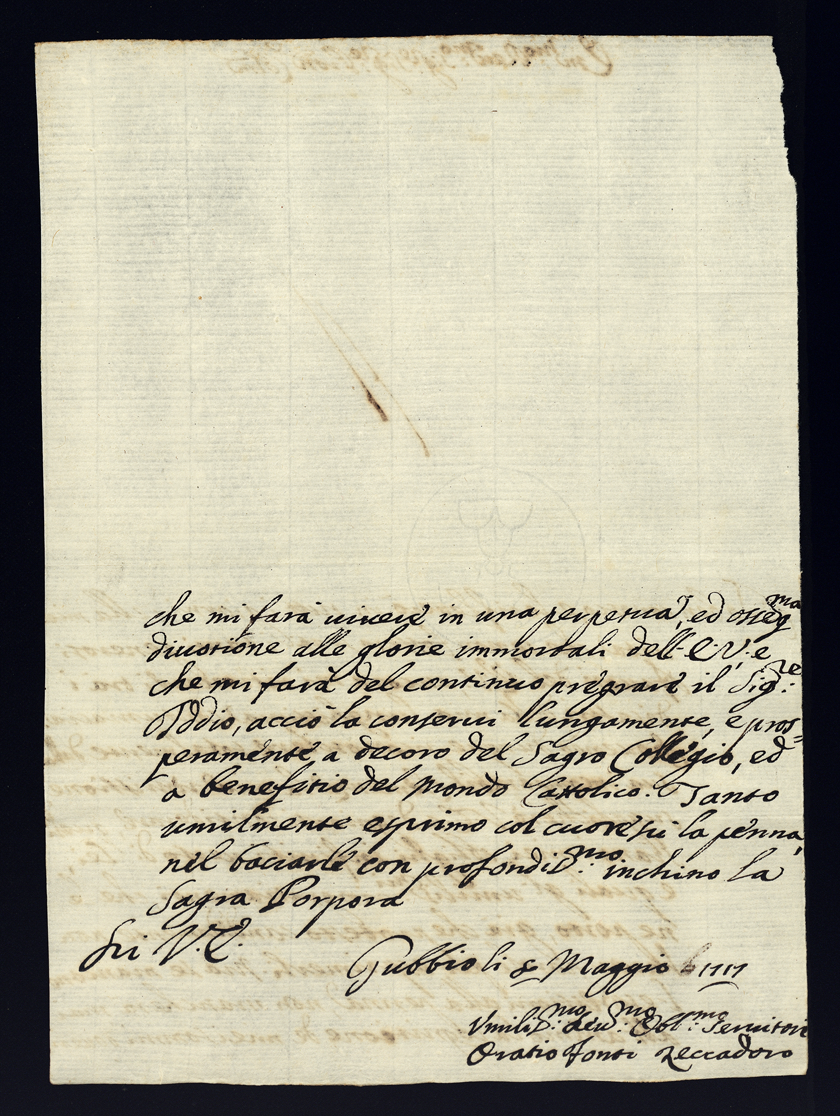 che mi farà uiuere in una perpetua, ed osseq.ma
diuotione alle glorie immortali dell'E.V. e
che mi farà del continuo pregrare il Sig.re:
Iddio, acciò la conserui lungamente, e pros=
peramente a decoro del Sagro Collegio, ed
a benefitio del mondo Cattolico. Tanto
umilmente esprimo col cuore sù la penna,
nel baciarle con profondiss.mo inchino la
Sagra Porpora
Di V.E.
Gubbio li 8 Maggio 1717
Vmiliss.mo Deu.mo Obl.mo Seruitore
Oratio Fonti Beccadoro